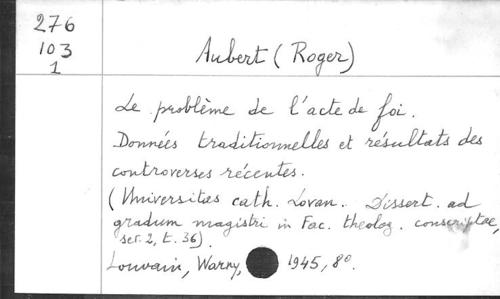 276
103
1
Aubert (Roger)
Le problème de l'acte de foi.
Données traditionnelles et résultats des
controverses récentes.
(Universitas cath. Lovan. Dissert. ad
gradum magistri in Fac. theolog. conscriptae,
ser. 2, t. 36).
Louvain, Warny, 1945, 8º.